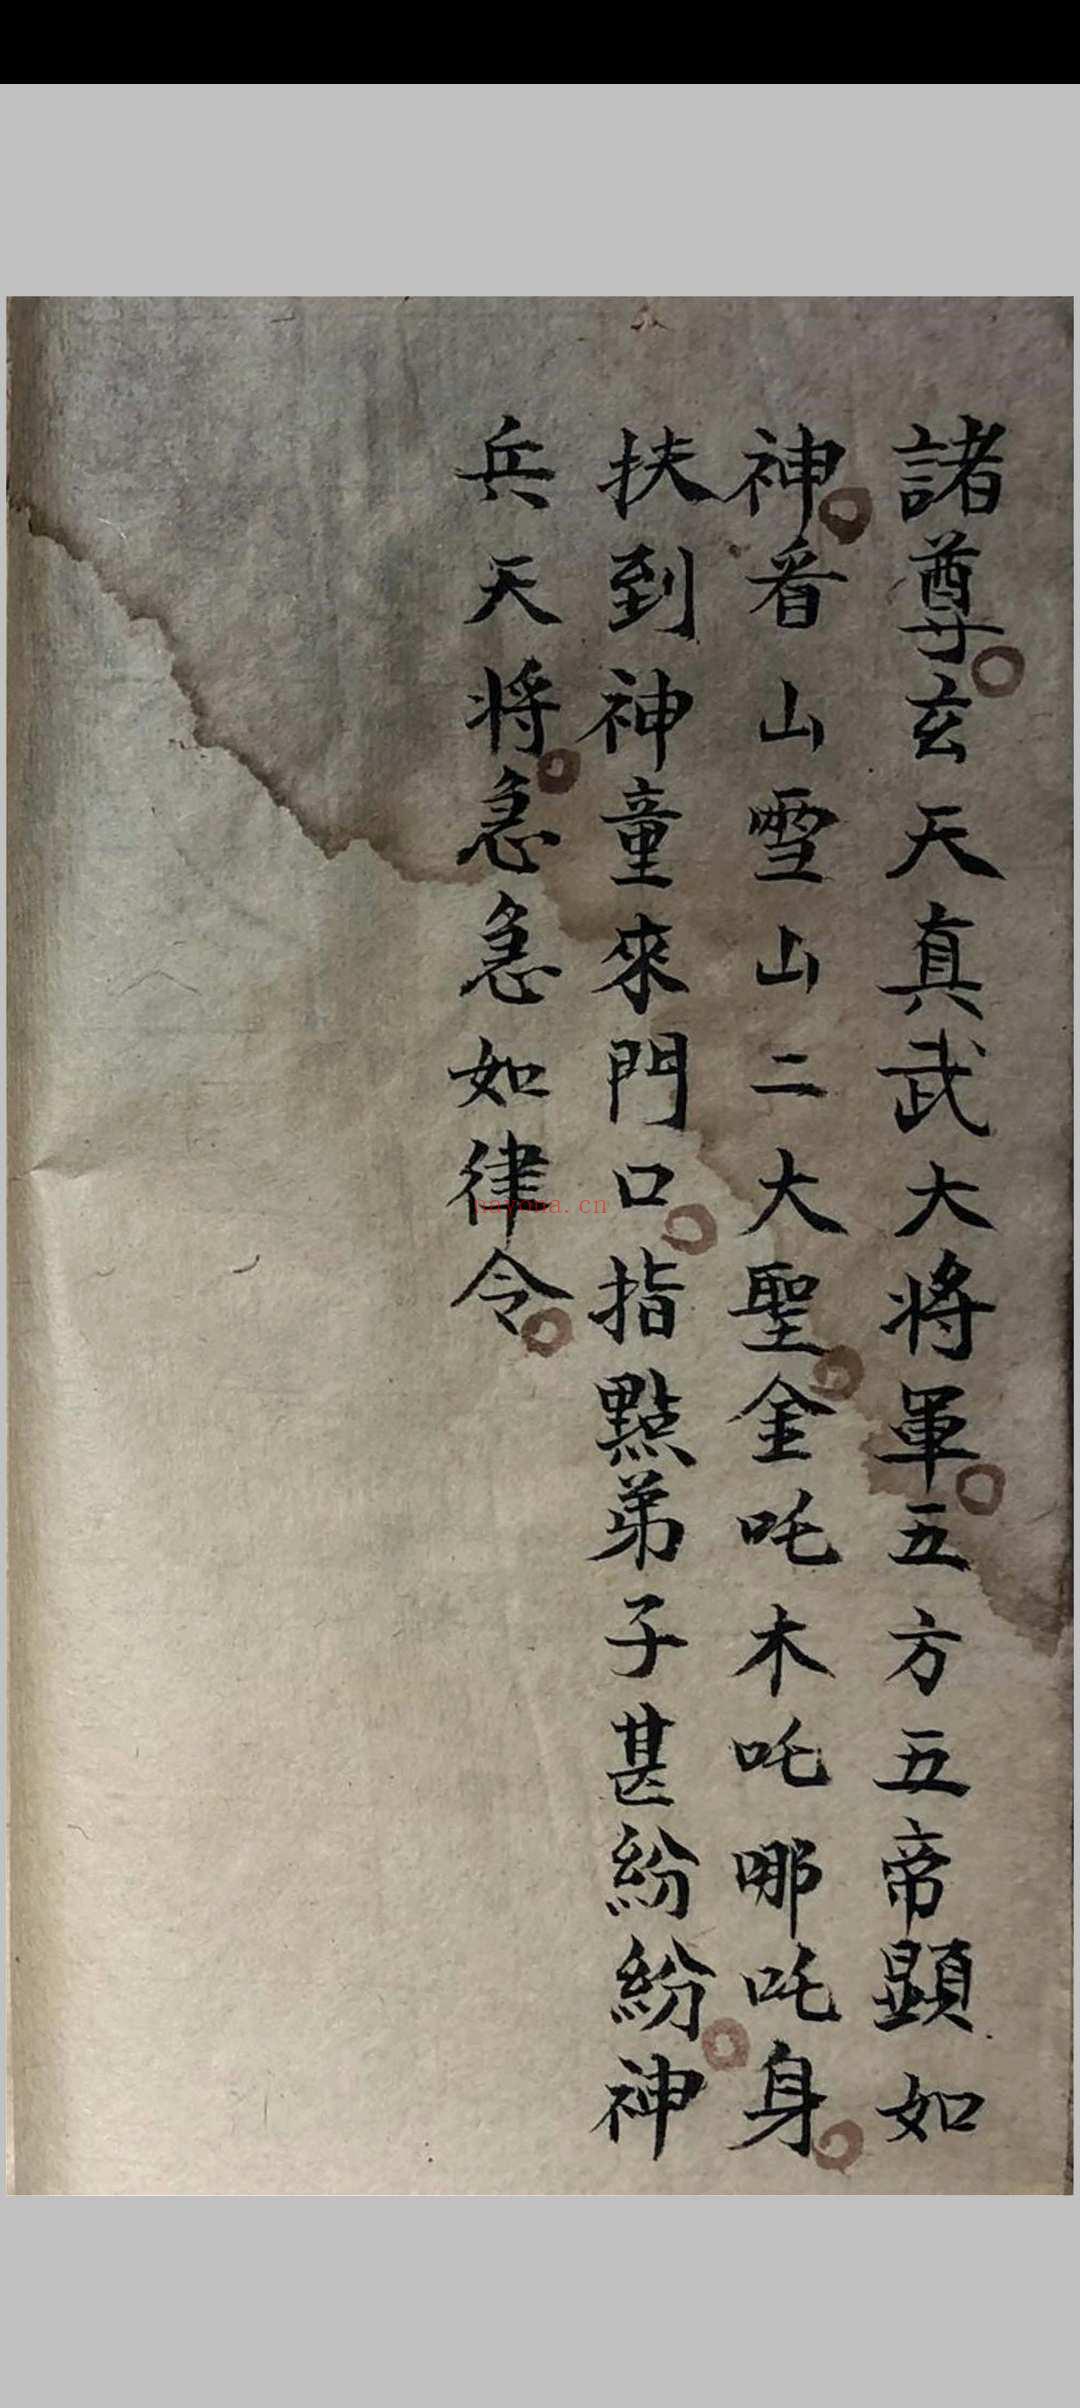 諸尊。玄天真武大将軍。五方五帝顕如
神。看山雪山二大聖。金吒木吒哪吒身。
扶到神童來門口。指點弟子甚紛紛。神
兵天将。急急如律令。
nayona.cn